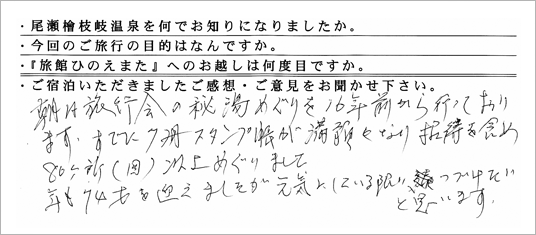 ・尾瀬檜枝岐温泉を何でお知りになりましたか。
・今回のご旅行の目的はなんですか。
・『旅館ひのえまた』へのお越しは何度目ですか。
・ご宿泊いただきましたご感想・ご意見をお聞かせ下さい。
朝日旅行会の秘湯めぐりを16年前から行っており
ます。すでに7冊スタンプ帳が満願となり招待を含め
80ヶ所(回)以上めぐりまして
年も74才を迎えましたが元気にしている限りつづけたい
と思います。